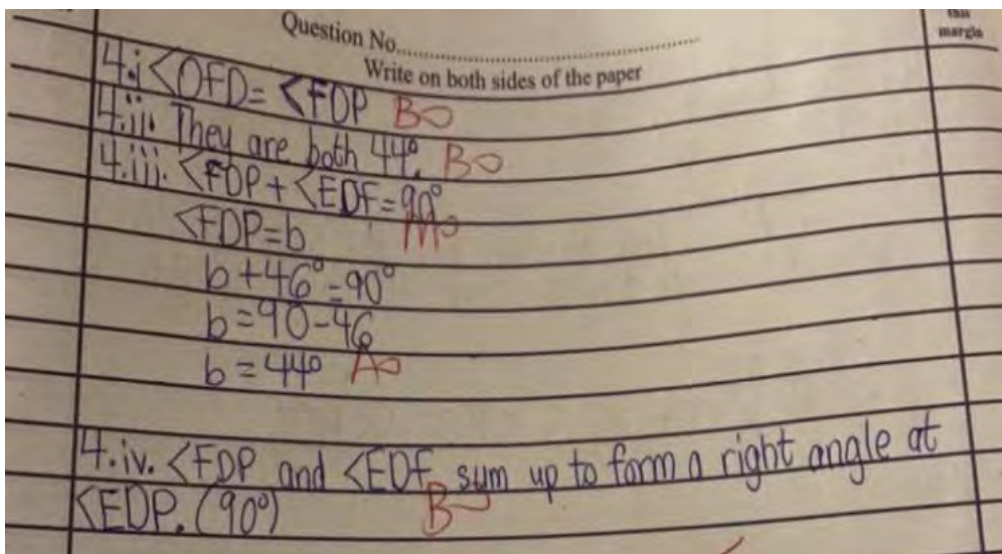 this
margin
Question No.
Write on both sides of the paper
4.i <OFD= <FDP B0
4.ii. They are both 44°. B0
4.iii. <FDP + <EDF = 90°
<FDP=b M0
b+46°=90°
b=90-46
b=44° A0
4.iv. <FDP and <EDF sum up to form a right angle at
<EDP. (90°) B0